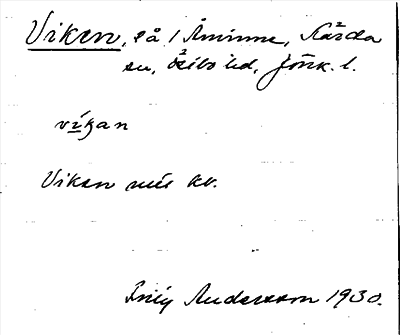 Viken, på / Åminne, Kärda
sn, Östbo hd, Jönk. l.
víkan
Viken
kv.
Andersson 1930.